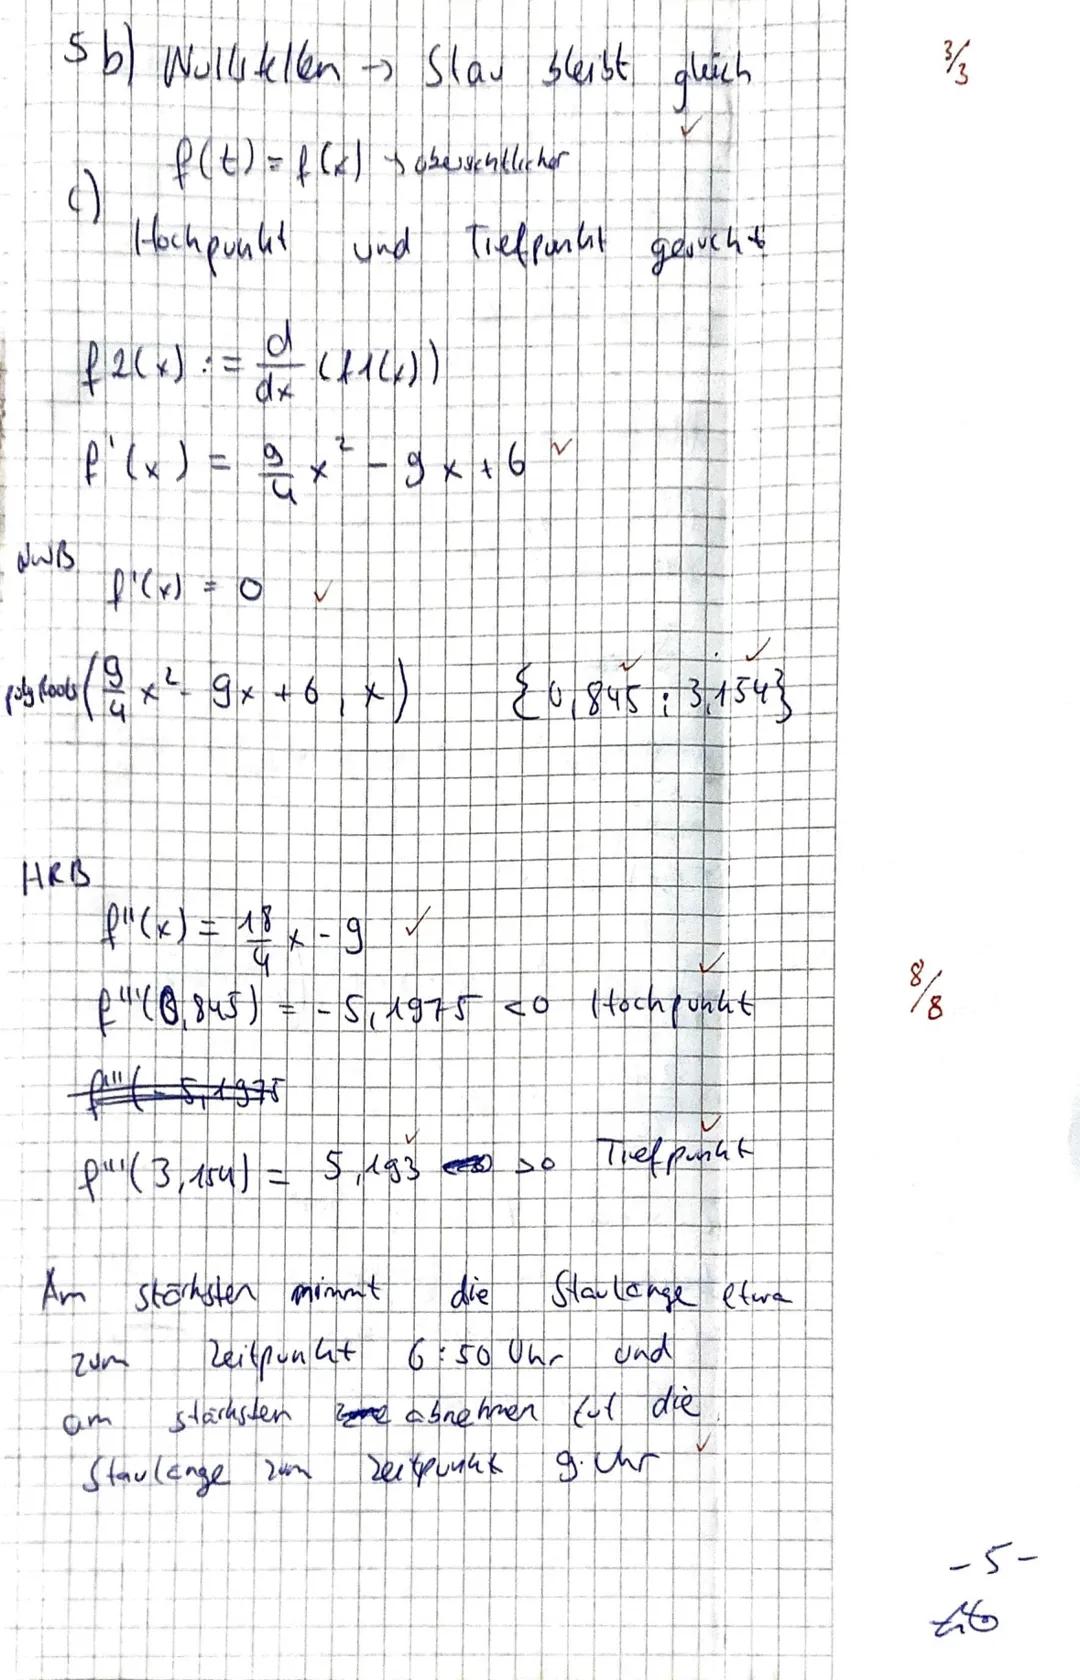 5 b) Nullstellen → Stau bleibt gleich 3/3
f(t) = f(x) → übersichtlicher
c)
Hochpunkt und Tiefpunkt gesucht
f2(x) := d/dx (f1(x))
f'(x) = 9/4 x² - 9x + 6
NWB
f'(x) = 0
polyRoots(9/4 x² - 9x + 6, x) {0,845 ; 3,154}
HRB
f''(x) = 18/4 x - 9
f'''(0,845) = -5,1975 <0 Hochpunkt 8/8
f'''(-5,1975
f'''(3,154) = 5,193 >0 Tiefpunkt
Am stärksten nimmt die Staulänge etwa
zum Zeitpunkt 6:50 Uhr und
am stärksten abnehmen tut die
Staulänge zum Zeitpunkt 9. Uhr
-5-